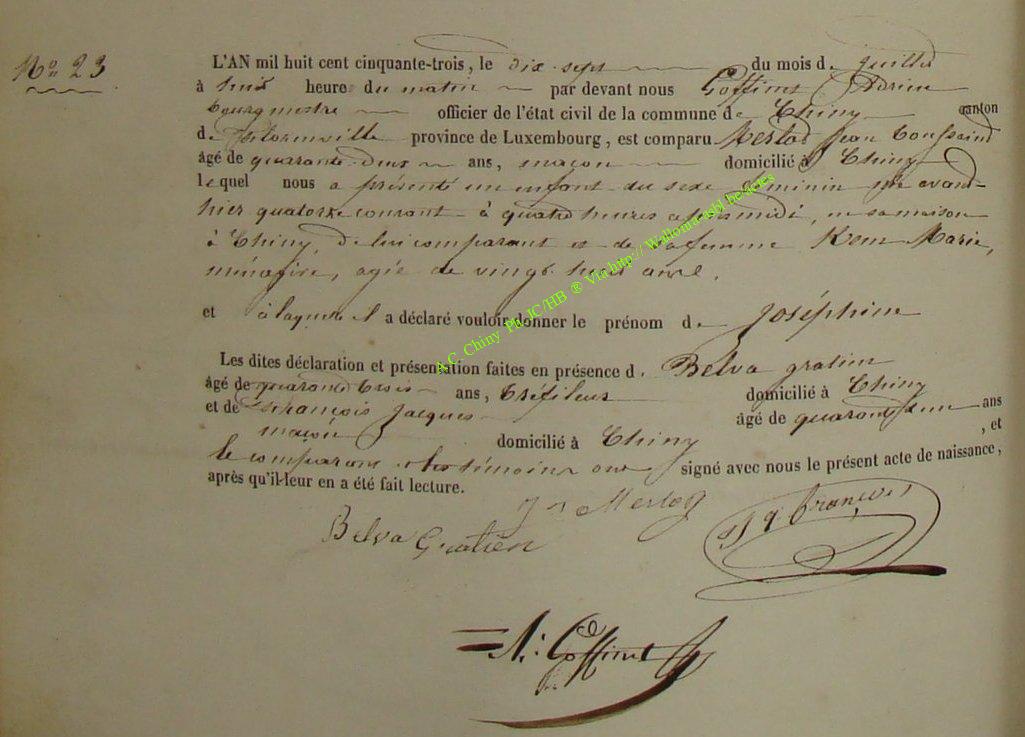 No 23
L'AN mil huit cent cinquante-trois, le dix sept du mois de juillet
à huit heures du matin par devant nous Goffinet Adrien
bourgmestre officier de l'état civil de la commune de Chiny canton
de Florenville province de Luxembourg, est comparu Merlot Jean Toussaint
âgé de quarante deux ans, maçon domicilié à Chiny
lequel nous a présenté un enfant du sexe féminin né avant-
hier quatorze courant à quatre heures après midi, en sa maison
à Chiny, de lui comparant et de sa femme Marie,
ménagère, agée de vingt huit ans.
et à laquelle il a déclaré vouloir donner le prénom de Joséphine
Les dites déclaration et présentation faites en présence de Belva gratien
âgé de quarante trois ans, tréfileur domicilié à Chiny
et de françois Jacques âgé de quarante un ans
maçon domicilié à Chiny, et
le comparant et les témoins ont signé avec nous le présent acte de naissance,
après qu'il leur en a été fait lecture.
Belva Gratien Merlot Jq françois
A. Goffinet
A.C. Chiny Ph JC/HB ® Via http://Wallonia-asbl.be/actes